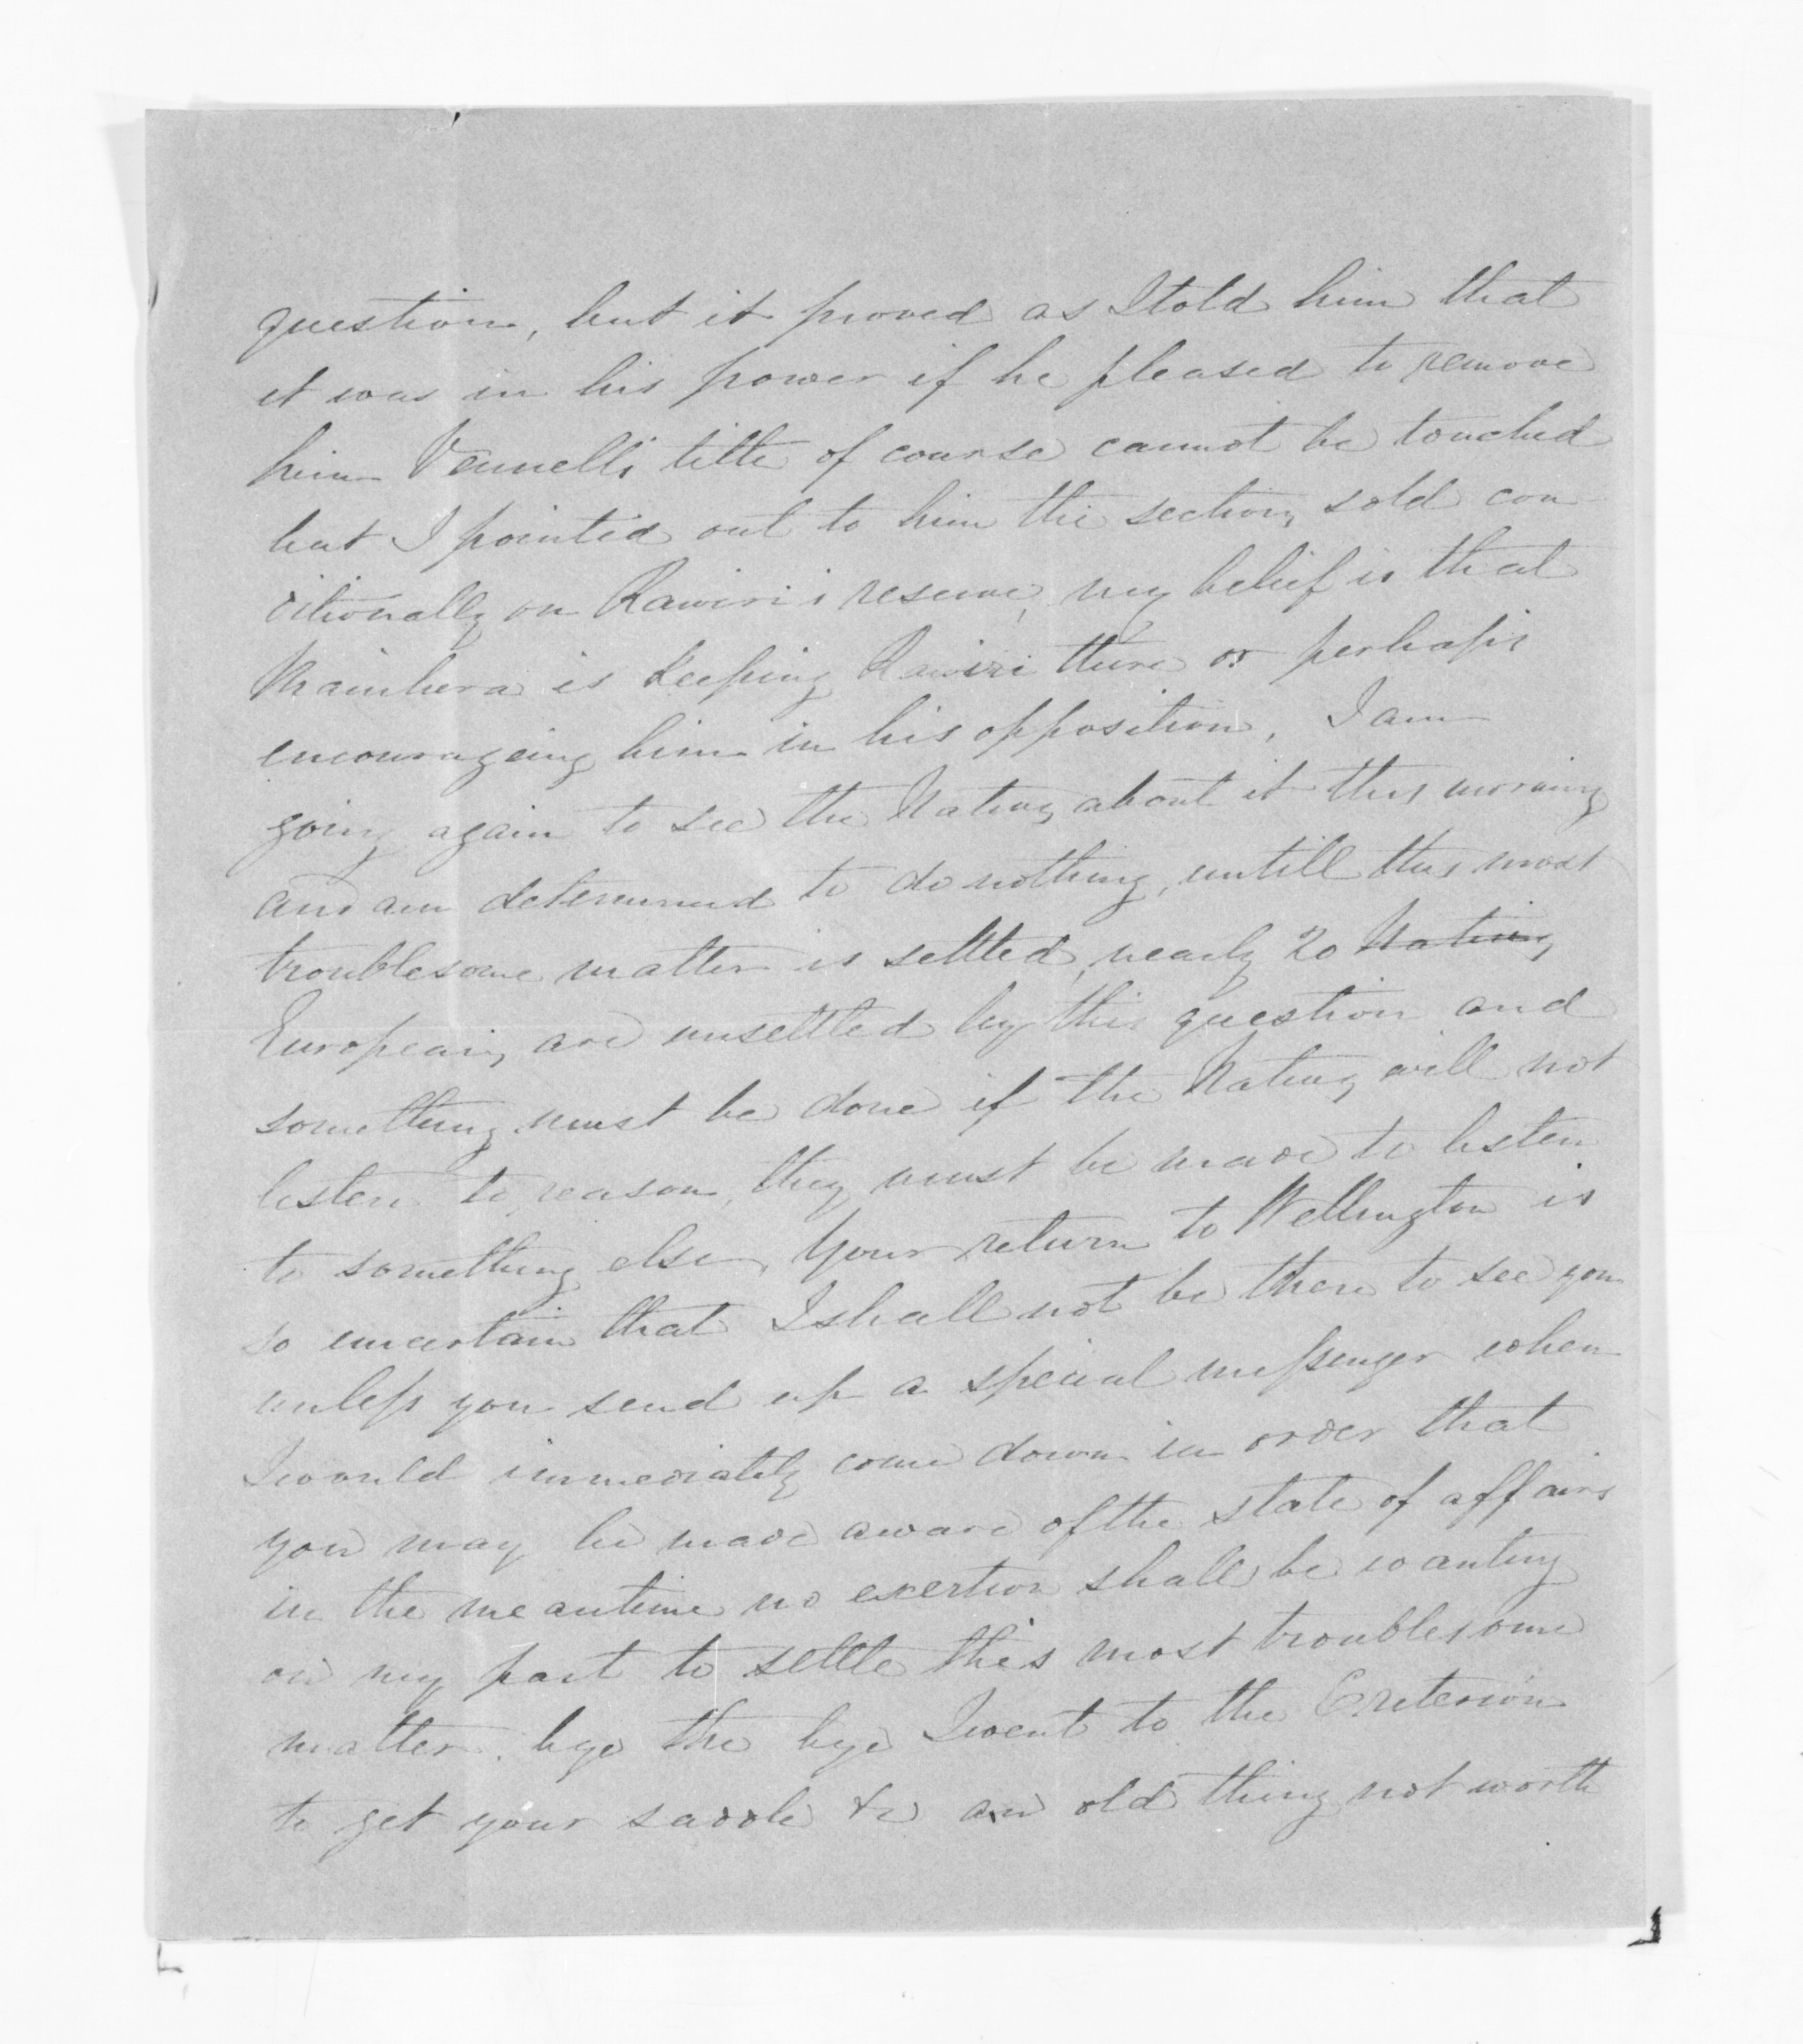 question, but it proved as I told him that
it was in his power if he pleased to remove
him Vennells title of course cannot be touched
but I pointed out to him the sections sold con
ditionally on Rawiri's reserve, my belief is that
is keeping Rawiri there or perhaps
encourageing him in his opposition, I am
going again to see the Natives about it this morning
and am determined to do nothing, untill this most
troublesome matter is settled, nearly 20 Natives
Europeans are unsettled by this question and
something must be done if the Natives will not
listen to reason, they must be made to listen
to something else, Your return to Wellington is
so uncertain that I shall not be there to see you
unless you send up a special messenger when
I would immediately come down in order that
you may be made aware of the state of affairs
in the meantime no exertion shall be wanting
on my part to settle this most troublesome
matter. bye the bye I went to the Criterion
to get your saddle &c an old thing not worth